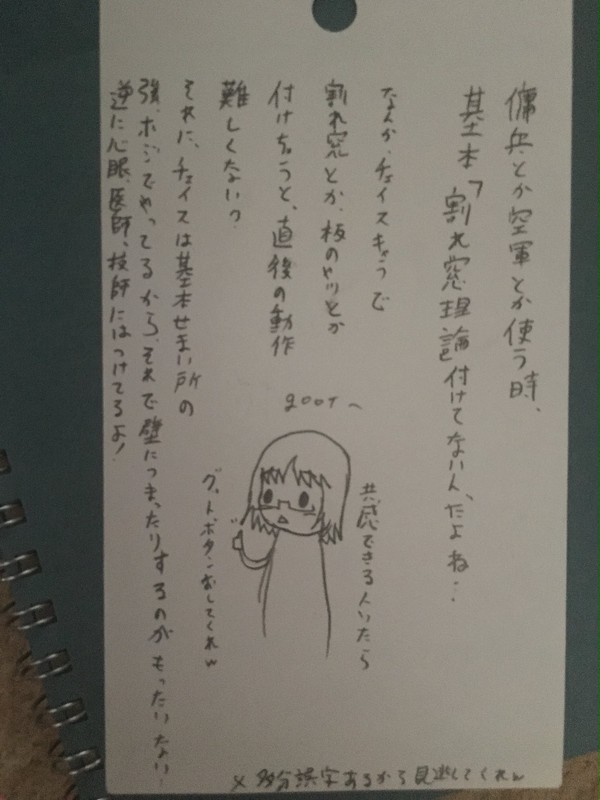 傭兵とか空軍とか使う時、
基本「割れ窓理論」付けてないんだよね…
なんか、チェイスキャラで
割れ窓とか、板のヤツとか
付けちゃうと、直後の動作
難しくない?
それに、チェイスは基本せまい所の
強ポジでやってるから、それで壁につまったりするのがもったいない!
逆に心眼、医師、技師にはつけてるよ!
gooT~
共感できる人いたら
グットボタンおしてくれw
×多分誤字あるから見逃してくれw